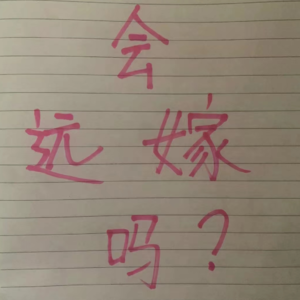 会
远嫁
吗？